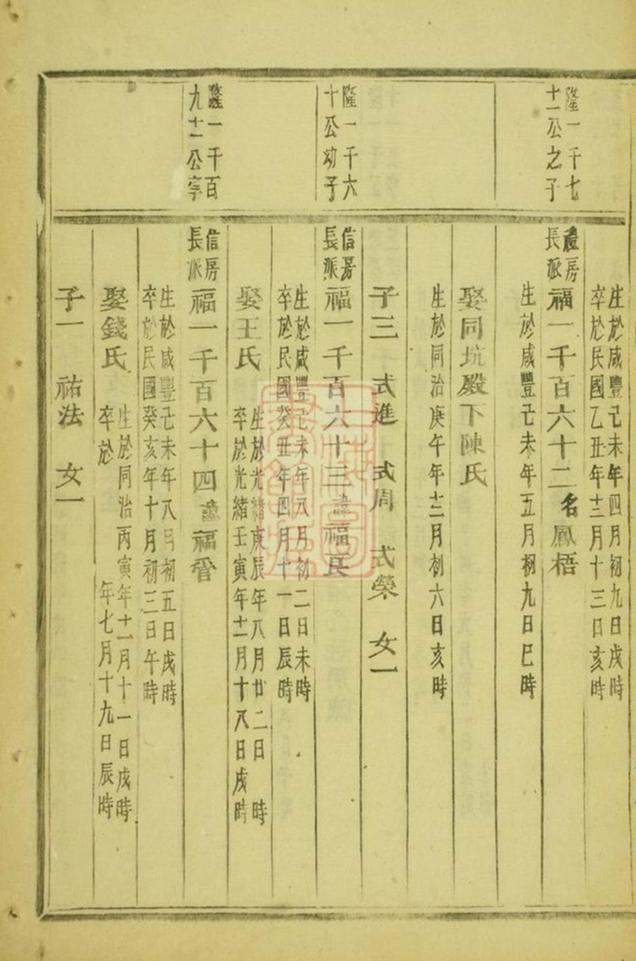 生於咸豐己未年四月初九日戌時
卒於民國乙丑年十二月十三日亥時
隆一千七
十一公之子
禮房
長派
福一千百六十二名鳳梧
生於咸豐己未年五月初九日巳時
娶同坑殿下陳氏
生於同治庚午年十二月初六日亥時
子三 式進 式周 式榮 女一
隆一千六
十公幼子
信房
長派
福一千百六十三諱福民
生於咸豐己未年八月初二日未時
卒於民國癸丑年四月十一日辰時
娶王氏
生於光緒庚辰年八月廿二日 時
卒於光緒壬寅年十二月十八日戌時
隆一千百
九十公字
信房
長派
福一千百六十四諱福
生於咸豐己未年八月初五日戌時
卒於民國癸亥年十月初三日午時
娶錢氏
生於同治丙寅年十二月十一日戌時
卒於 年七月十九日辰時
子一 祐法 女一